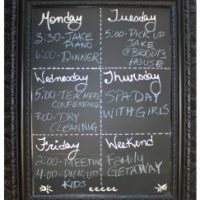 Monday
3:30-JAKE
PIANO
6:00-DINNER
Tuesday
5:00-PICK UP
JAKE
HOUSE
Wednesday
5:00-TEACHERS
CONFERENCE
7:00-DRY
CLEANING
Thursday
SPA DAY
WITH GIRLS
Friday
2:00-MEETING
4:00-PICK UP
KIDS
Weekend
Family
GETAWAY